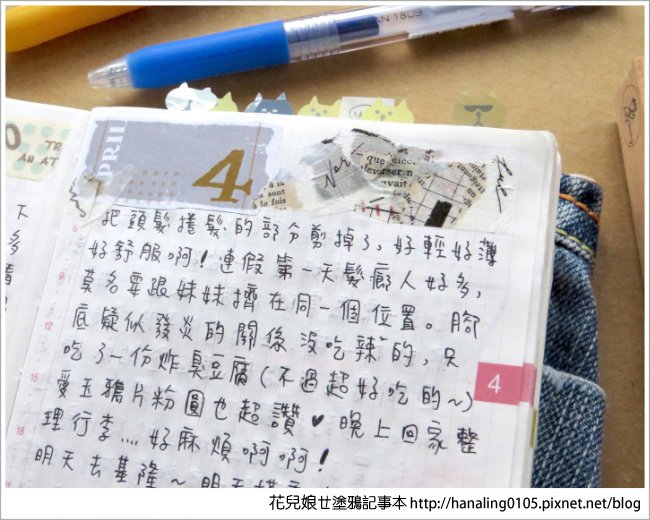 O TR
AN AT
PRIL
4
avait
sont
à la fois
不
多
把頭髮捲髮的部分剪掉了,好輕好薄
好舒服啊!連假第一天髮廊人好多,
莫名要跟妹妹擠在同一個位置。腳
底疑似發炎的關係沒吃辣的,只
吃了一份炸臭豆腐(不過超好吃的~)
愛玉鴉片粉圓也超讚♥ 晚上回家整
理行李....好麻煩啊啊!
明天去基隆~明天
12
15
18
4
花兒娘ㄝ塗鴉記事本 http://hanaling0105.pixnet.net/blog